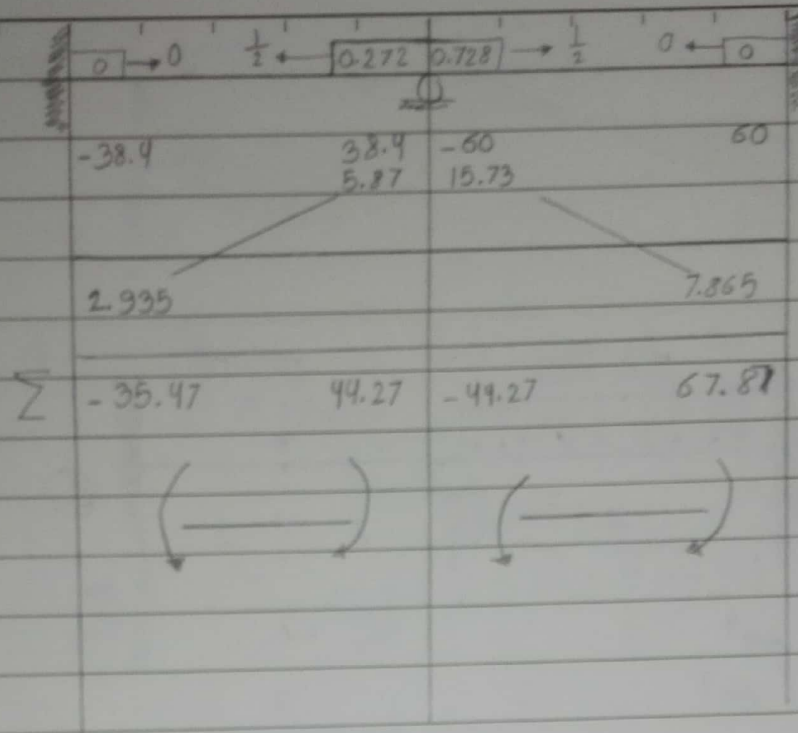 0 → 0 1/2 ← 0.272 0.728 → 1/2 0 ← 0
-38.4 38.4 -60 60
5.87 15.73
2.935 7.865
Σ -35.47 44.27 -44.27 67.87